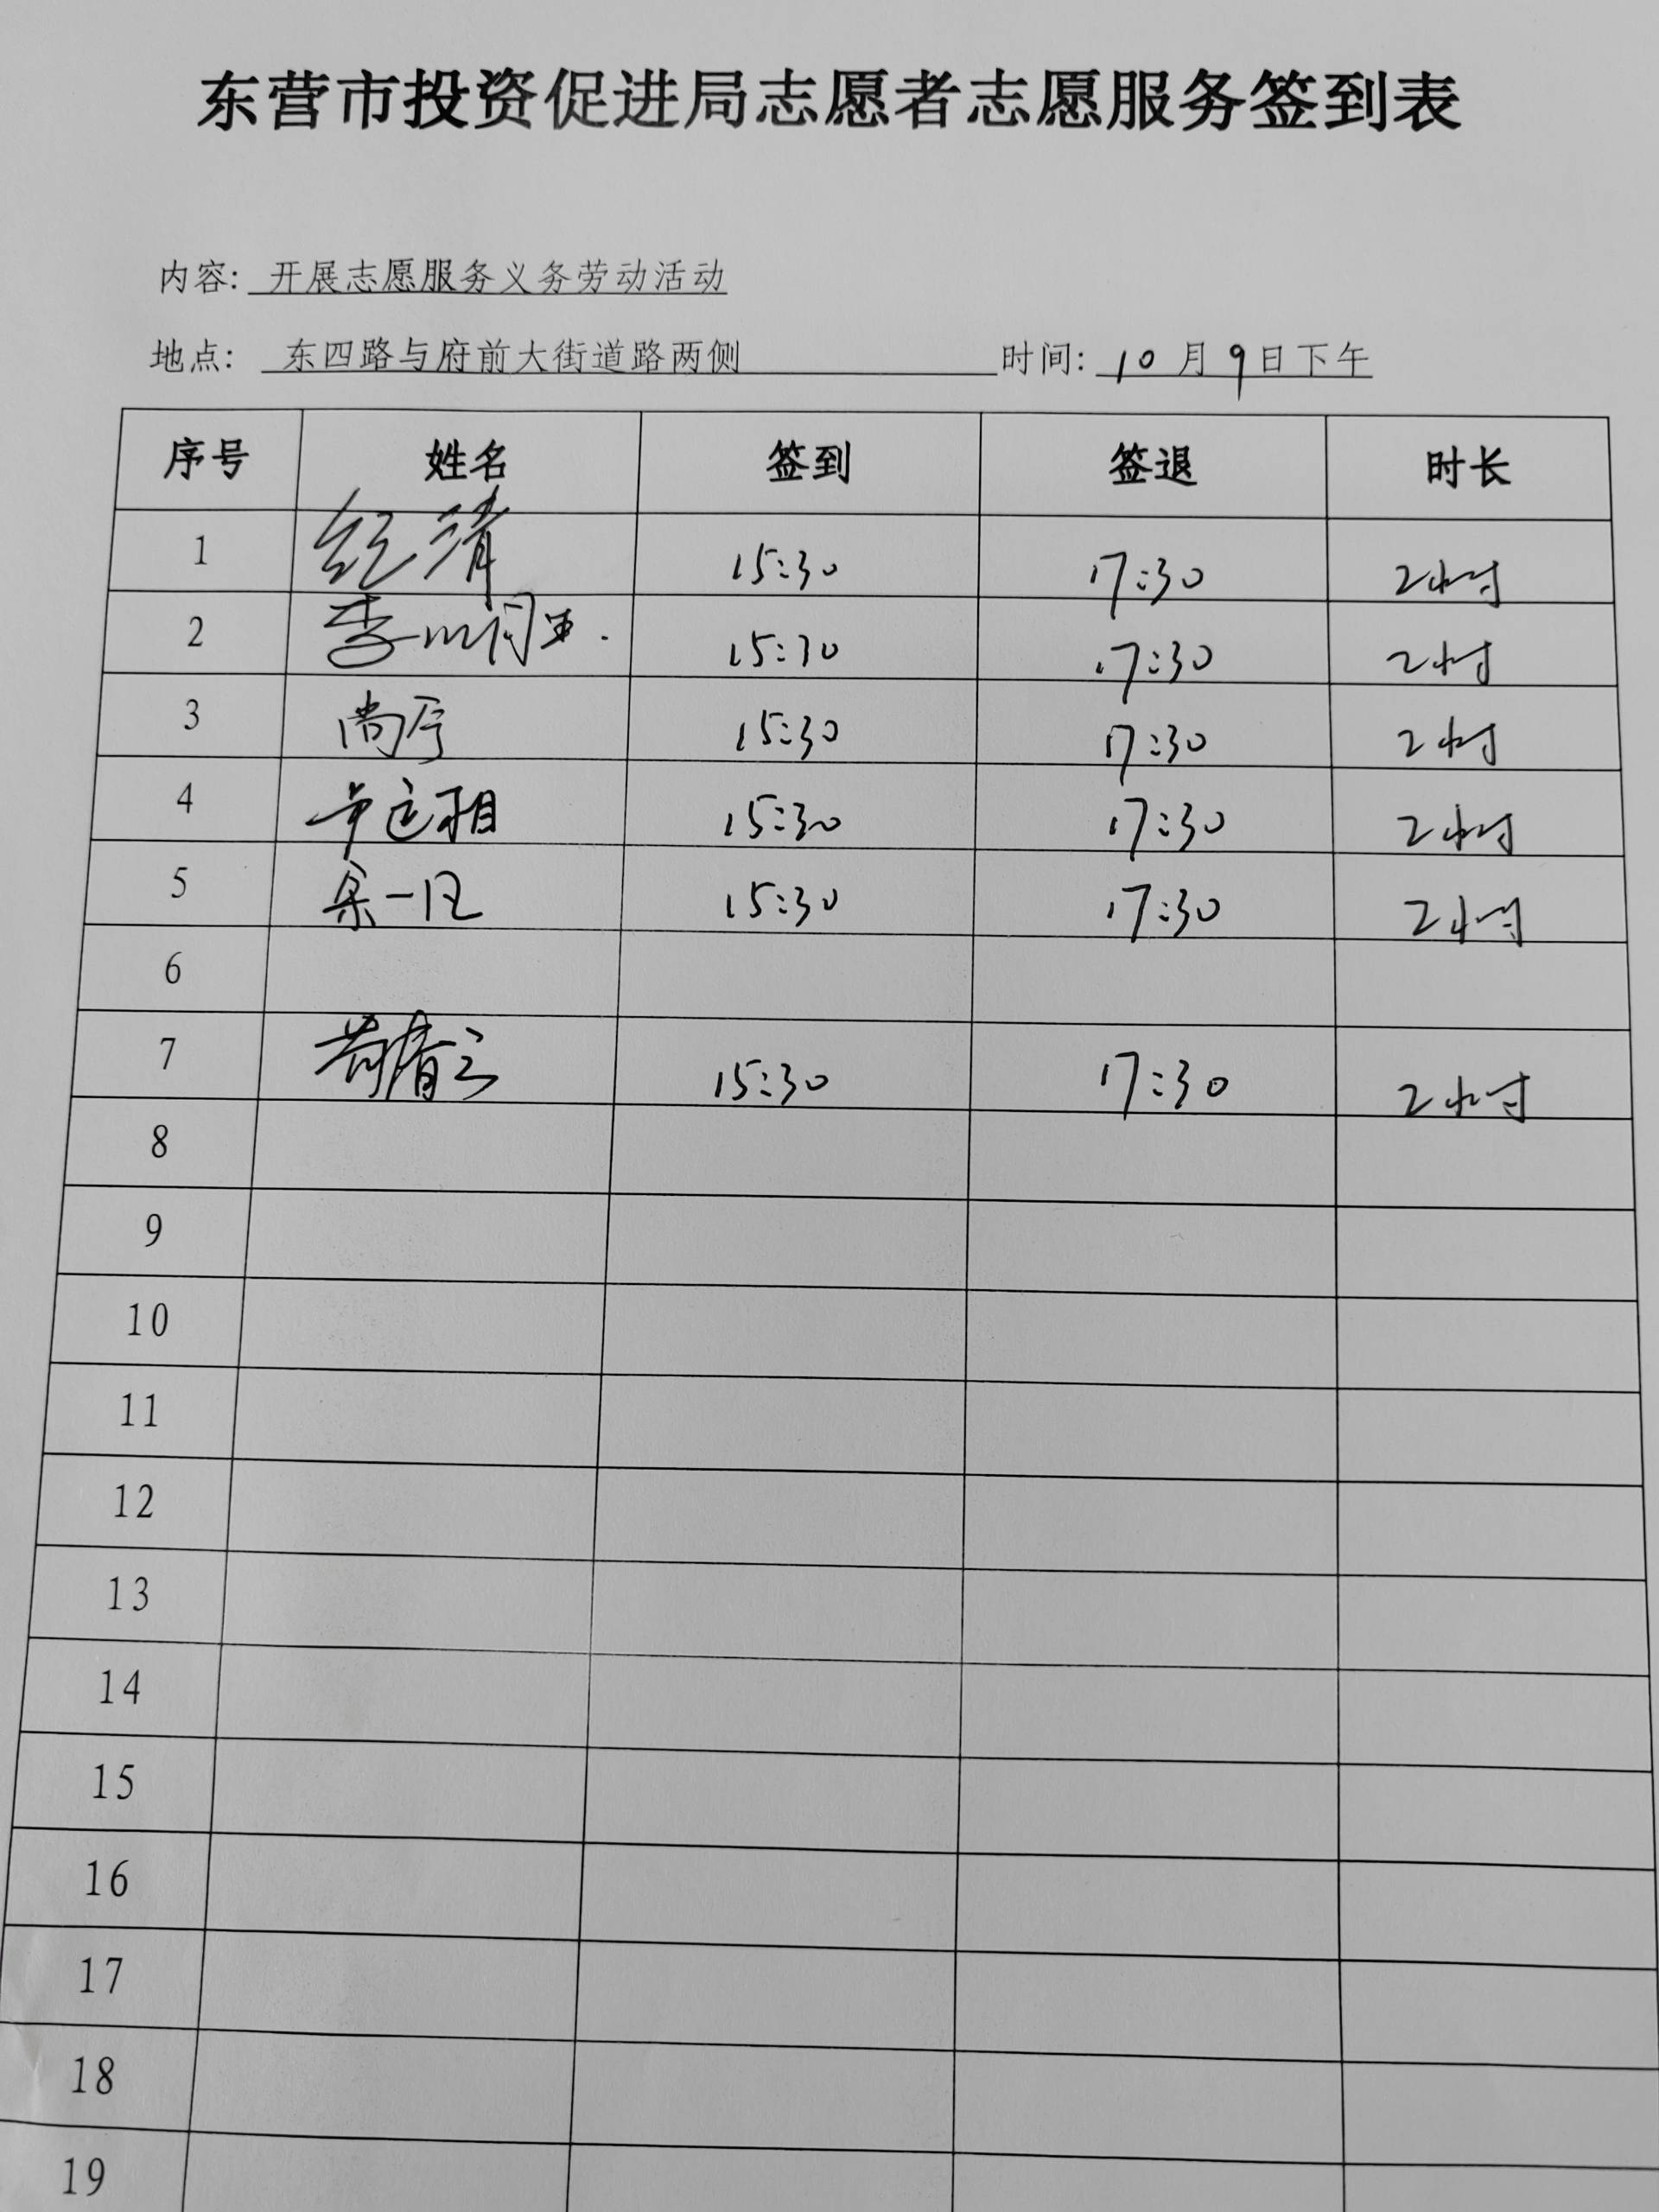 东营市投资促进局志愿者志愿服务签到表
内容: 开展志愿服务义务劳动活动
地点: 东四路与府前大街道路两侧 时间: 10月9日下午
序号 姓名 签到 签退 时长
1 纪清 15:30 17:30 2小时
2 李 15:30 17:30 2小时
3 尚 15:30 17:30 2小时
4 15:30 17:30 2小时
5 一凡 15:30 17:30 2小时
6
7 15:30 17:30 2小时
8
9
10
11
12
13
14
15
16
17
18
19